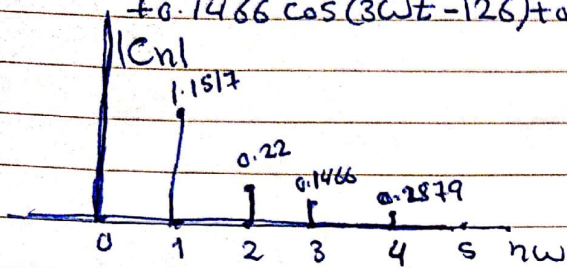 +0.1466 cos(3ωt-126)+0
|Cn|
1.1517
0.22
0.1466
0.2879
0 1 2 3 4 5 nω